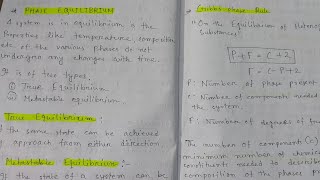 PHASE EQUILIBRIUM
A system is in equilibrium is the
Properties like temperature, composition
etc. of the various phases do not
undergoes any changes with time.
It is of two types
(i) True Equilibrium
(ii) Metastable equilibrium.
True Equilibrium
If the same state can be achieved
approach from either direction.
Metastable Equilibrium :-
If the state of a system can be
Gibbs phase Rule
"On the Equilibrium of Heterog
Substances"
P+F = C+2
F = C-P+2
P: Number of phase present
C: Number of components needed
the system.
F: Number of degrees of
The number of component (C)
minimum number of chemical
constituent needed to describe
composition of the phases pr